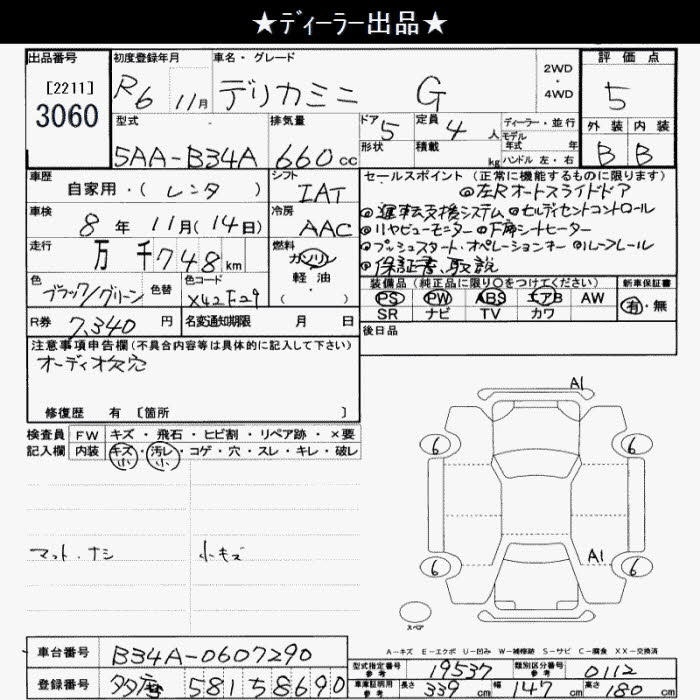 ★ディーラー出品★
出品番号 初度登録年月 車名・グレード 2WD・4WD 評価点
[2211] 3060 R6 11月 デリカミニ G 5
型式 排気量 ドア 5 定員 4 人 ディーラー・並行 外装 内装
モデル年式 年
5AA-B34A 660cc 形状 積載 kg ハンドル 左・右 B B
車歴 シフト セールスポイント(正常に機能するものに限ります)
自家用・(レンタ) IAT ◎左Rオートスライドドア
車検 冷房 ◎運転支援システム ◎セルディセントコントロール
8年11月(14日) AAC ◎リヤビューモニター ◎下席シートヒーター
走行 燃料 ◎プッシュスタート・オペレーションキー ◎ルーフレール
万千748km ガソリン ◎保証書、取説
軽油
( )
色 色替 色コード 装備品(純正品に限り○をつけてください) 新車保証書
ブラック/グリーン X42F29 PS PW ABS エアB AW 有・無
SR ナビ TV カワ
R券 7,340円 名変通知期限 月 日 後日品
注意事項申告欄(不具合内容等は具体的に記入して下さい)
オーディオ欠穴
修復歴 有 [箇所 ]
検査員 FW キズ・飛石・ヒビ割・リペア跡・×要
記入欄 内装 キズ・汚レ・コゲ・穴・スレ・キレ・破レ
小 小
マット・ナシ 小キズ
A1
6 6
A1
6 6
スペア
A-キズ E-エクボ U-凹み W-補修跡 S-サビ C-腐食 XX-交換済
車台番号 B34A-0607290 型式指定番号 参考 19537 類別区分番号 参考 0112
登録番号 多摩 581 5 8690 車庫証明用 参考 長さ 339cm 幅 147cm 高さ 180cm